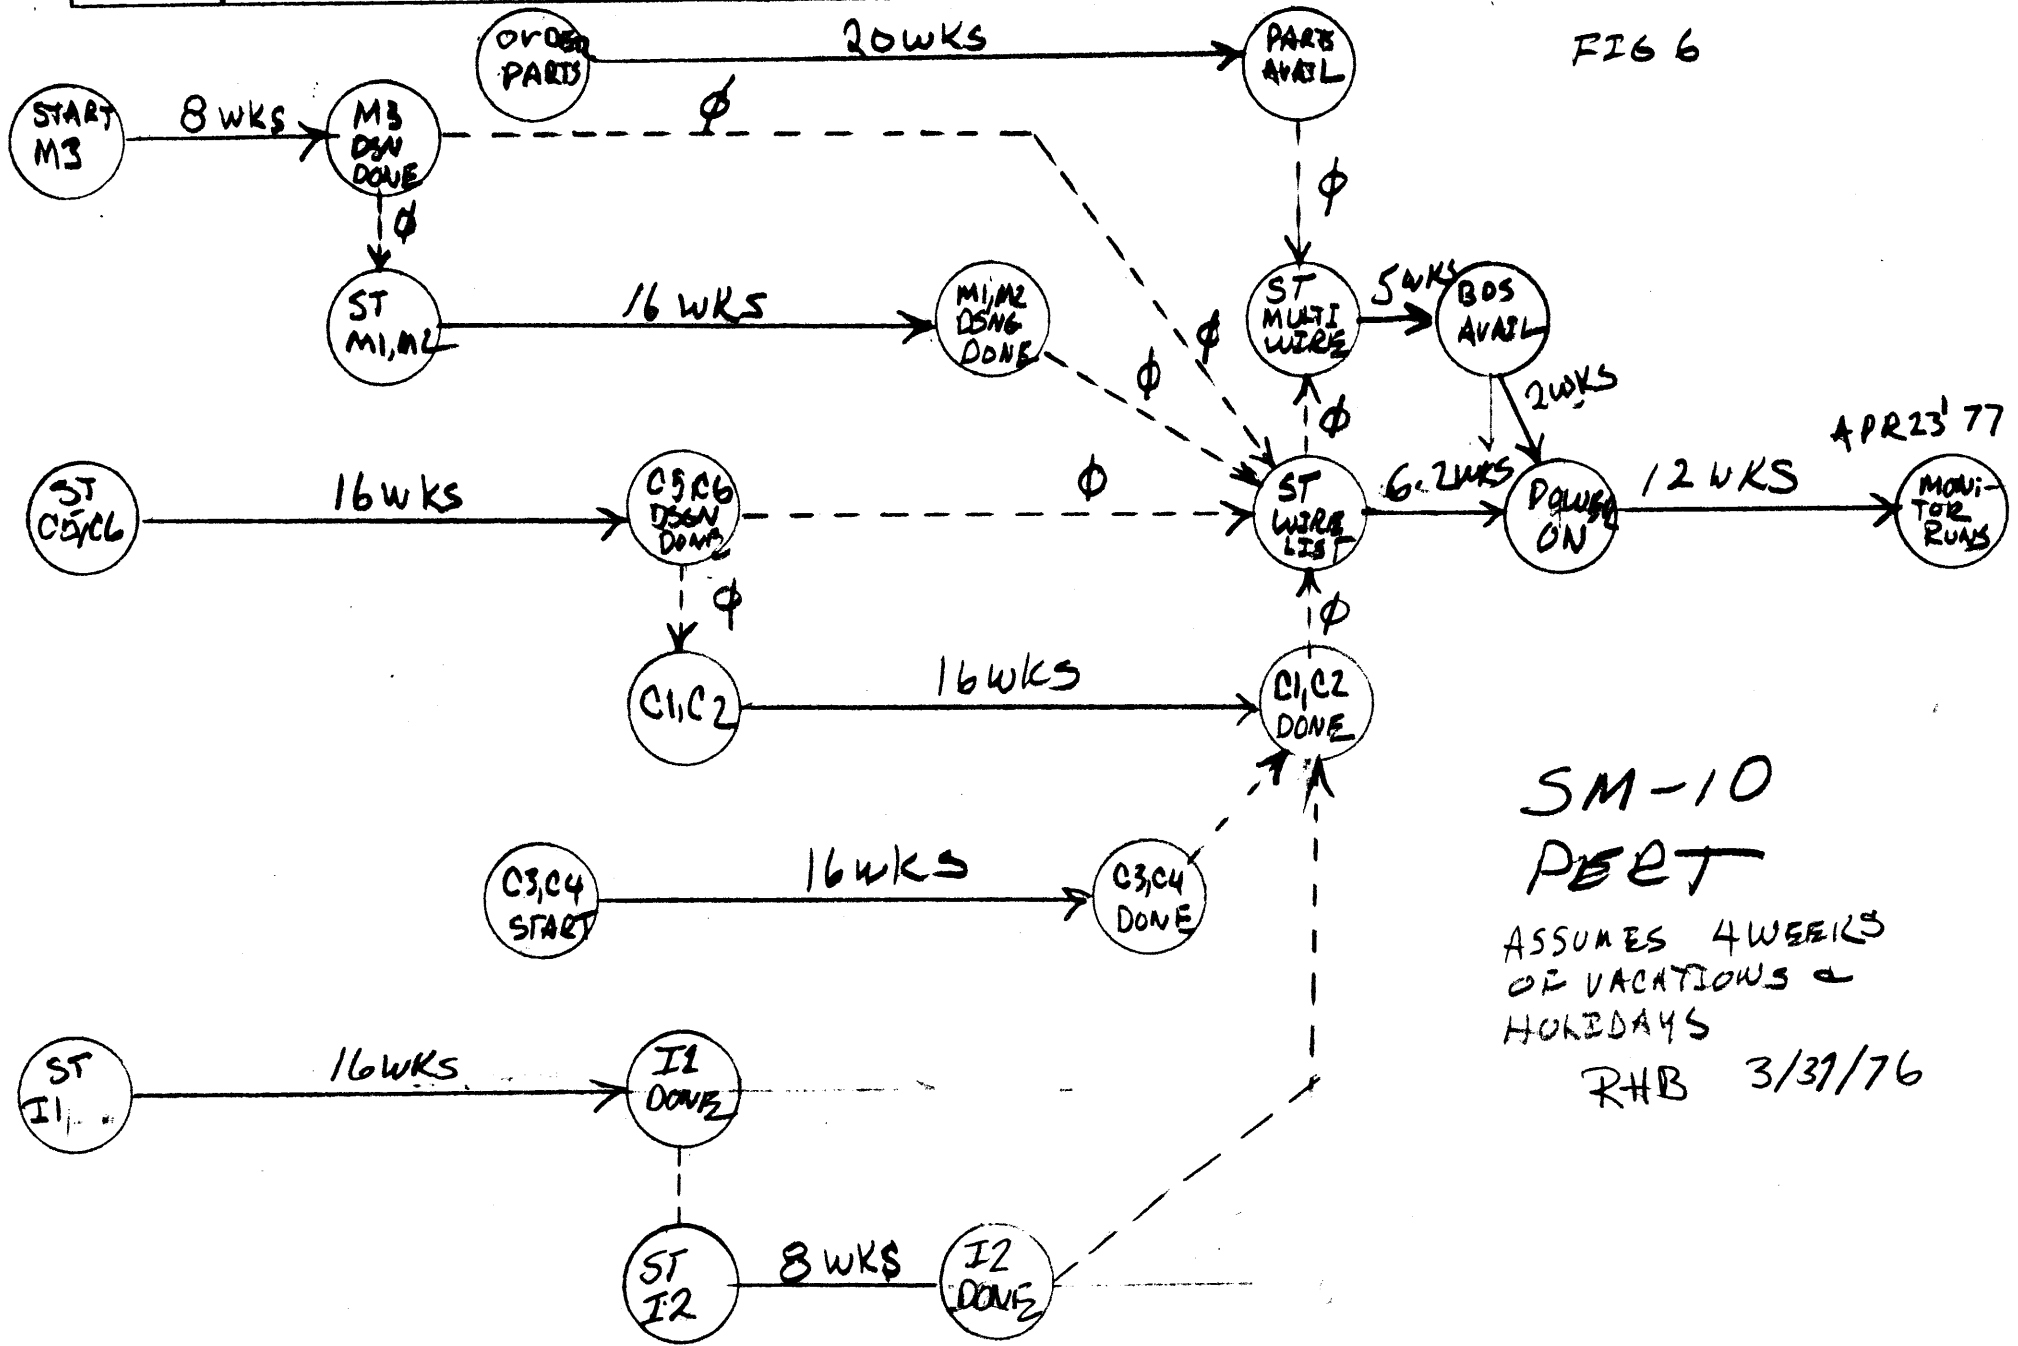 FIG 6
ORDER
PARTS
20 WKS
PARTS
AVAIL
START
M3
8 WKS
M3
DSN
DONE
ϕ
ϕ
ϕ
ST
M1,M2
16 WKS
M1,M2
DSNG
DONE
ϕ
ϕ
ST
MULTI
WIRE
5 WKS
BDS
AVAIL
2 WKS
ϕ
APR 23 '77
ST
C5,C6
16 WKS
C5,C6
DSGN
DONE
ϕ
ST
WIRE
LIST
6.2 WKS
POWER
ON
12 WKS
MONI-
TOR
RUNS
ϕ
ϕ
C1,C2
16 WKS
C1,C2
DONE
C3,C4
START
16 WKS
C3,C4
DONE
SM-10
PERT
ASSUMES 4 WEEKS
OF VACATIONS &
HOLIDAYS
RHB 3/31/76
ST
I1
16 WKS
I1
DONE
ST
I2
8 WKS
I2
DONE